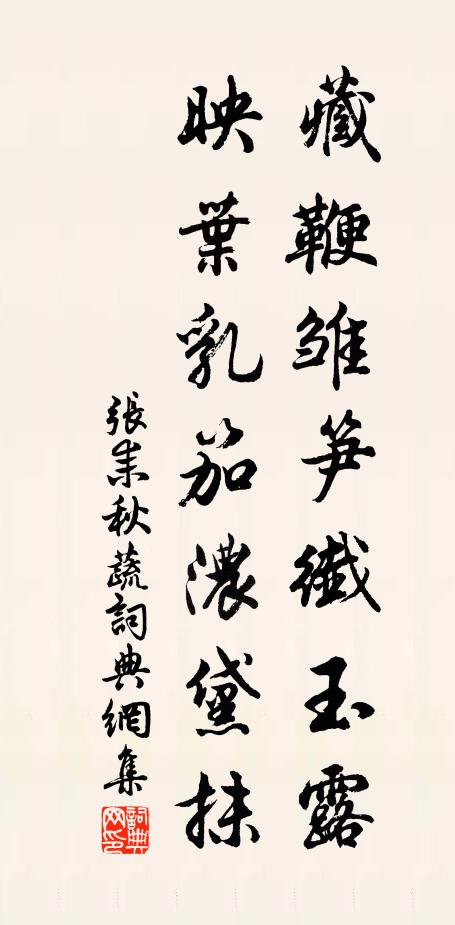 藏鞭雏笋纖玉露
映葉乳茄濃黛抹
張耒秋蔬詞典網集
詞典网印